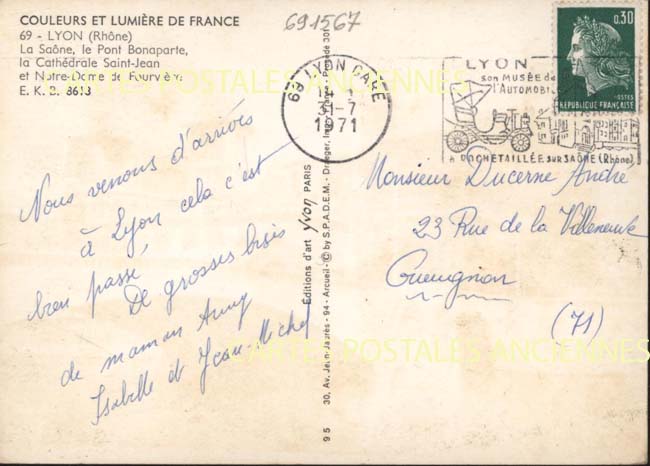 COULEURS ET LUMIÈRE DE FRANCE
69 - LYON (Rhône)
La Saône, le Pont Bonaparte,
la Cathédrale Saint-Jean
et Notre-Dame de Fourvière
E. K. B. 8613
691567
69 LYON GARE
31-7
1971
LYON
son MUSÉE de
l'AUTOMOBI
A ROCHETAILLÉE SUR SAÔNE (Rhône)
0,30
POSTES
RÉPUBLIQUE FRANÇAISE
CARTES POSTALES ANCIENNES
Nous venons d'arrivés
à Lyon cela c'est
bien passé,
De grosses bises
de maman Anny
Isabelle et Jean-Michel
Editions d'art yvon PARIS
30, Av. Jean-Jaurès - 94 - Arcueil - © by S.P.A.D.E.M. - Draeger, Imp.
95
Monsieur Ducerne André
23 Rue de la Villeneuve
Gueugnon
(71)
CARTES POSTALES ANCIENNES